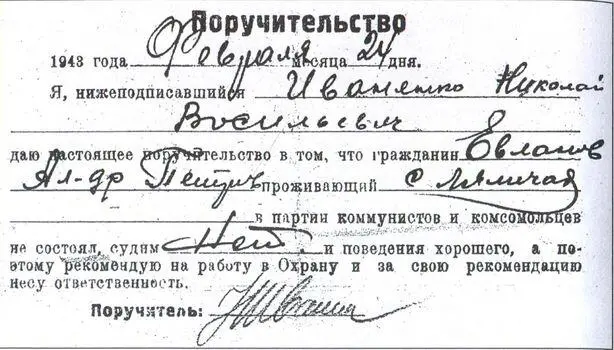 Поручительство
1943 года Февраля месяца 24 дня.
Я, нижеподписавшийся Иваненко Николай
Васильевич
даю настоящее поручительство в том, что гражданин Евланов
Ал-др Петрович проживающий с Ляличах
в партии коммунистов и комсомольцев
не состоял, судим Нет и поведения хорошего, а по-
этому рекомендую на работу в Охрану и за свою рекомендацию
несу ответственность.
Поручитель: